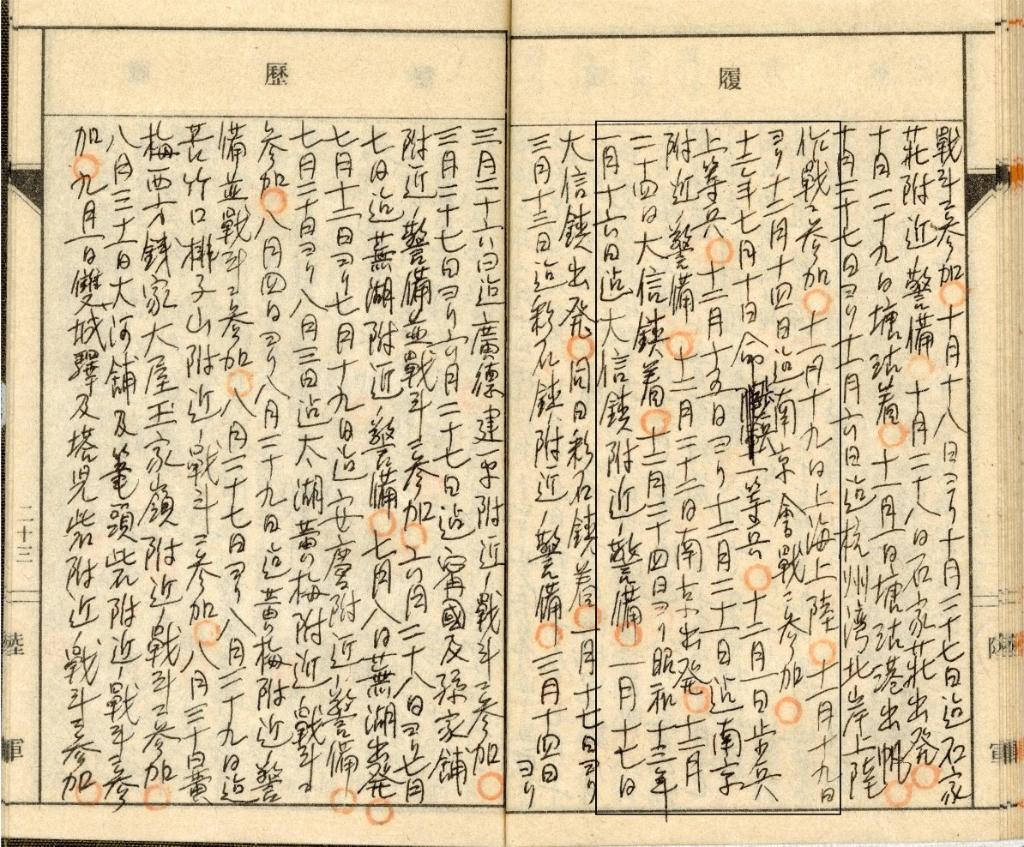 履
戰斗ニ参加○十月十八日ヨリ十月二十七日迠石家
莊附近ノ警備○十月二十八日石家莊出発○
十月二十九日塘沽着○十一月一日塘沽港出帆○
十月二十七日ヨリ十一月六日迠杭州湾北岸上陸
作戰ニ参加○十一月十九日上海上陸○十一月十九日
ヨリ十二月十四日迠南京會戰ニ参加○
十二年七月十日命一等兵○十二月一日歩兵
上等兵○十二月十五日ヨリ十二月二十一日迠南京
附近ノ警備○十二月二十二日南京出発○十二月
二十四日大信鎮着○十二月二十四日ヨリ昭和十三年
一月十六日迠大信鎮附近ノ警備○一月十七日
大信鎮出発○同日彩石鎮着○一月十七日ヨリ
三月十三日迠彩石鎮附近ノ警備○三月十四日ヨリ
歷
三月二十六日迠廣德建平附近ノ戰斗ニ参加○
三月二十七日ヨリ六月二十七日迠甯國及孫家舖
附近ノ警備並戰斗ニ参加○六月二十八日ヨリ七月
七日迠蕪湖附近ノ警備○七月八日蕪湖出発○
七月十二日ヨリ七月十九日迠安慶附近ノ警備○
七月二十日ヨリ八月三日迠太湖黄梅附近ノ戰斗ニ
参加○八月四日ヨリ八月二十九日迠黄梅附近ノ警
備並戰斗ニ参加○八月二十七日ヨリ八月二十九日迠
苦竹口排子山附近ノ戰斗ニ参加○八月三十日黄
梅西方錢家大屋王家嶺附近ノ戰斗ニ参加○
八月三十一日大河舖及筆頭砦附近ノ戰斗ニ参
加○九月一日雙城驛及塔兒砦附近ノ戰斗ニ参加○
二十三
陸
軍
陸
軍